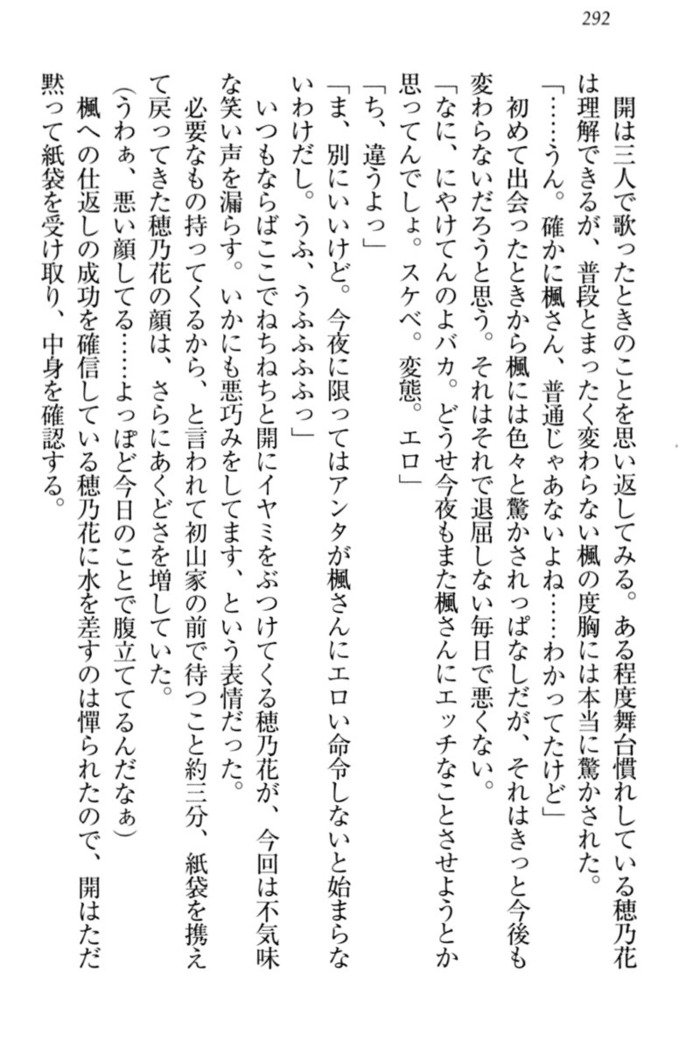 292
開は三人で歌ったときのことを思い返してみる。ある程度舞台慣れしている穂乃花
は理解できるが、普段とまったく変わらない楓の度胸には本当に驚かされた。
「……うん。確かに楓さん、普通じゃあないよね……わかってたけど」
初めて出会ったときから楓には色々と驚かされっぱなしだが、それはきっと今後も
変わらないだろうと思う。それはそれで退屈しない毎日で悪くない。
「なに、にやけてんのよバカ。どうせ今夜もまた楓さんにエッチなことさせようとか
思ってんでしょ。スケベ。変態。エロ」
「ち、違うよっ」
「ま、別にいいけど。今夜に限ってはアンタが楓さんにエロい命令しないと始まらな
いわけだし。うふ、うふふふふっ」
いつもならばここでねちねちと開にイヤミをぶつけてくる穂乃花が、今回は不気味
な笑い声を漏らす。いかにも悪巧みをしてます、という表情だった。
必要なもの持ってくるから、と言われて初山家の前で待つこと約三分、紙袋を携え
て戻ってきた穂乃花の顔は、さらにあくどさを増していた。
(うわぁ、悪い顔してる……よっぽど今日のことで腹立ててるんだなぁ)
楓への仕返しの成功を確信している穂乃花に水を差すのは憚られたので、開はただ
黙って紙袋を受け取り、中身を確認する。